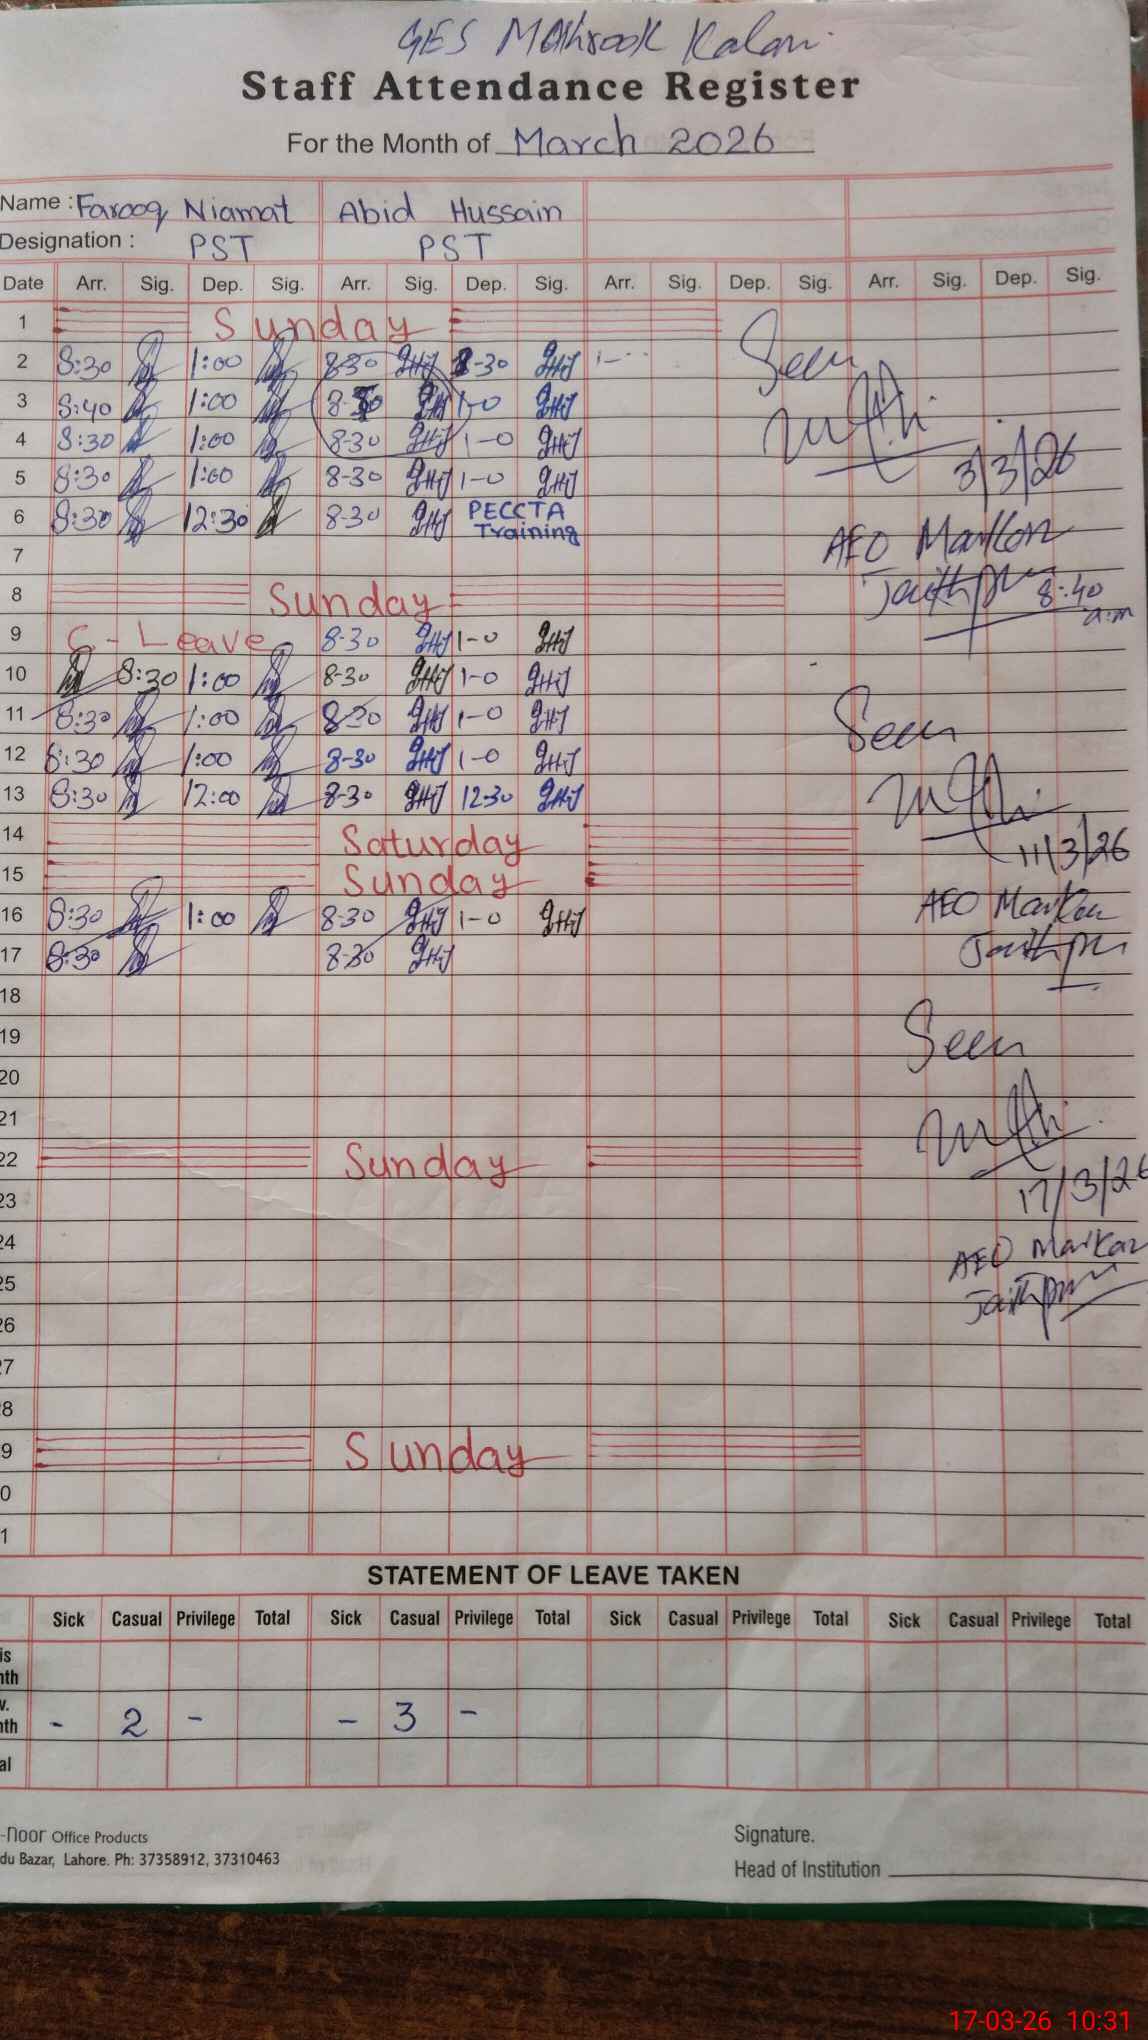 GES Mahrook Kalan
Staff Attendance Register
For the Month of March 2026
Name : Farooq Niamat Abid Hussain
Designation : PST PST
Date Arr. Sig. Dep. Sig. Arr. Sig. Dep. Sig. Arr. Sig. Dep. Sig. Arr. Sig. Dep. Sig.
1 Sunday
2 8:30 1:00 8-30 -30
Seen
3 8:40 1:00 1-0
4 8:30 1:00 8-30 1-0
3/3/26
5 8:30 1:00 8-30 1-0
6 8:30 12:30 8-30 PECCTA Training
AEO Markaz
7
Jaithpur 8:40 a:m
8 Sunday
9 C-Leave 8-30 1-0
10 8:30 1:00 8-30 1-0
11 8:30 1:00 8-30 1-0
Seen
12 8:30 1:00 8-30 1-0
13 8:30 12:00 8-30 12-30
14 Saturday
11/3/26
15 Sunday
AEO Markaz
16 8:30 1:00 8-30 1-0
Jaithpur
17 8:30 8-30
18
19
Seen
20
21
22 Sunday
17/3/26
23
24
AEO Markaz
25
Jaithpur
26
27
8
9 Sunday
0
1
STATEMENT OF LEAVE TAKEN
Sick Casual Privilege Total Sick Casual Privilege Total Sick Casual Privilege Total Sick Casual Privilege Total
is
nth
v.
nth - 2 - - 3 -
al
-noor Office Products
du Bazar, Lahore. Ph: 37358912, 37310463
Signature.
Head of Institution
17-03-26 10:31